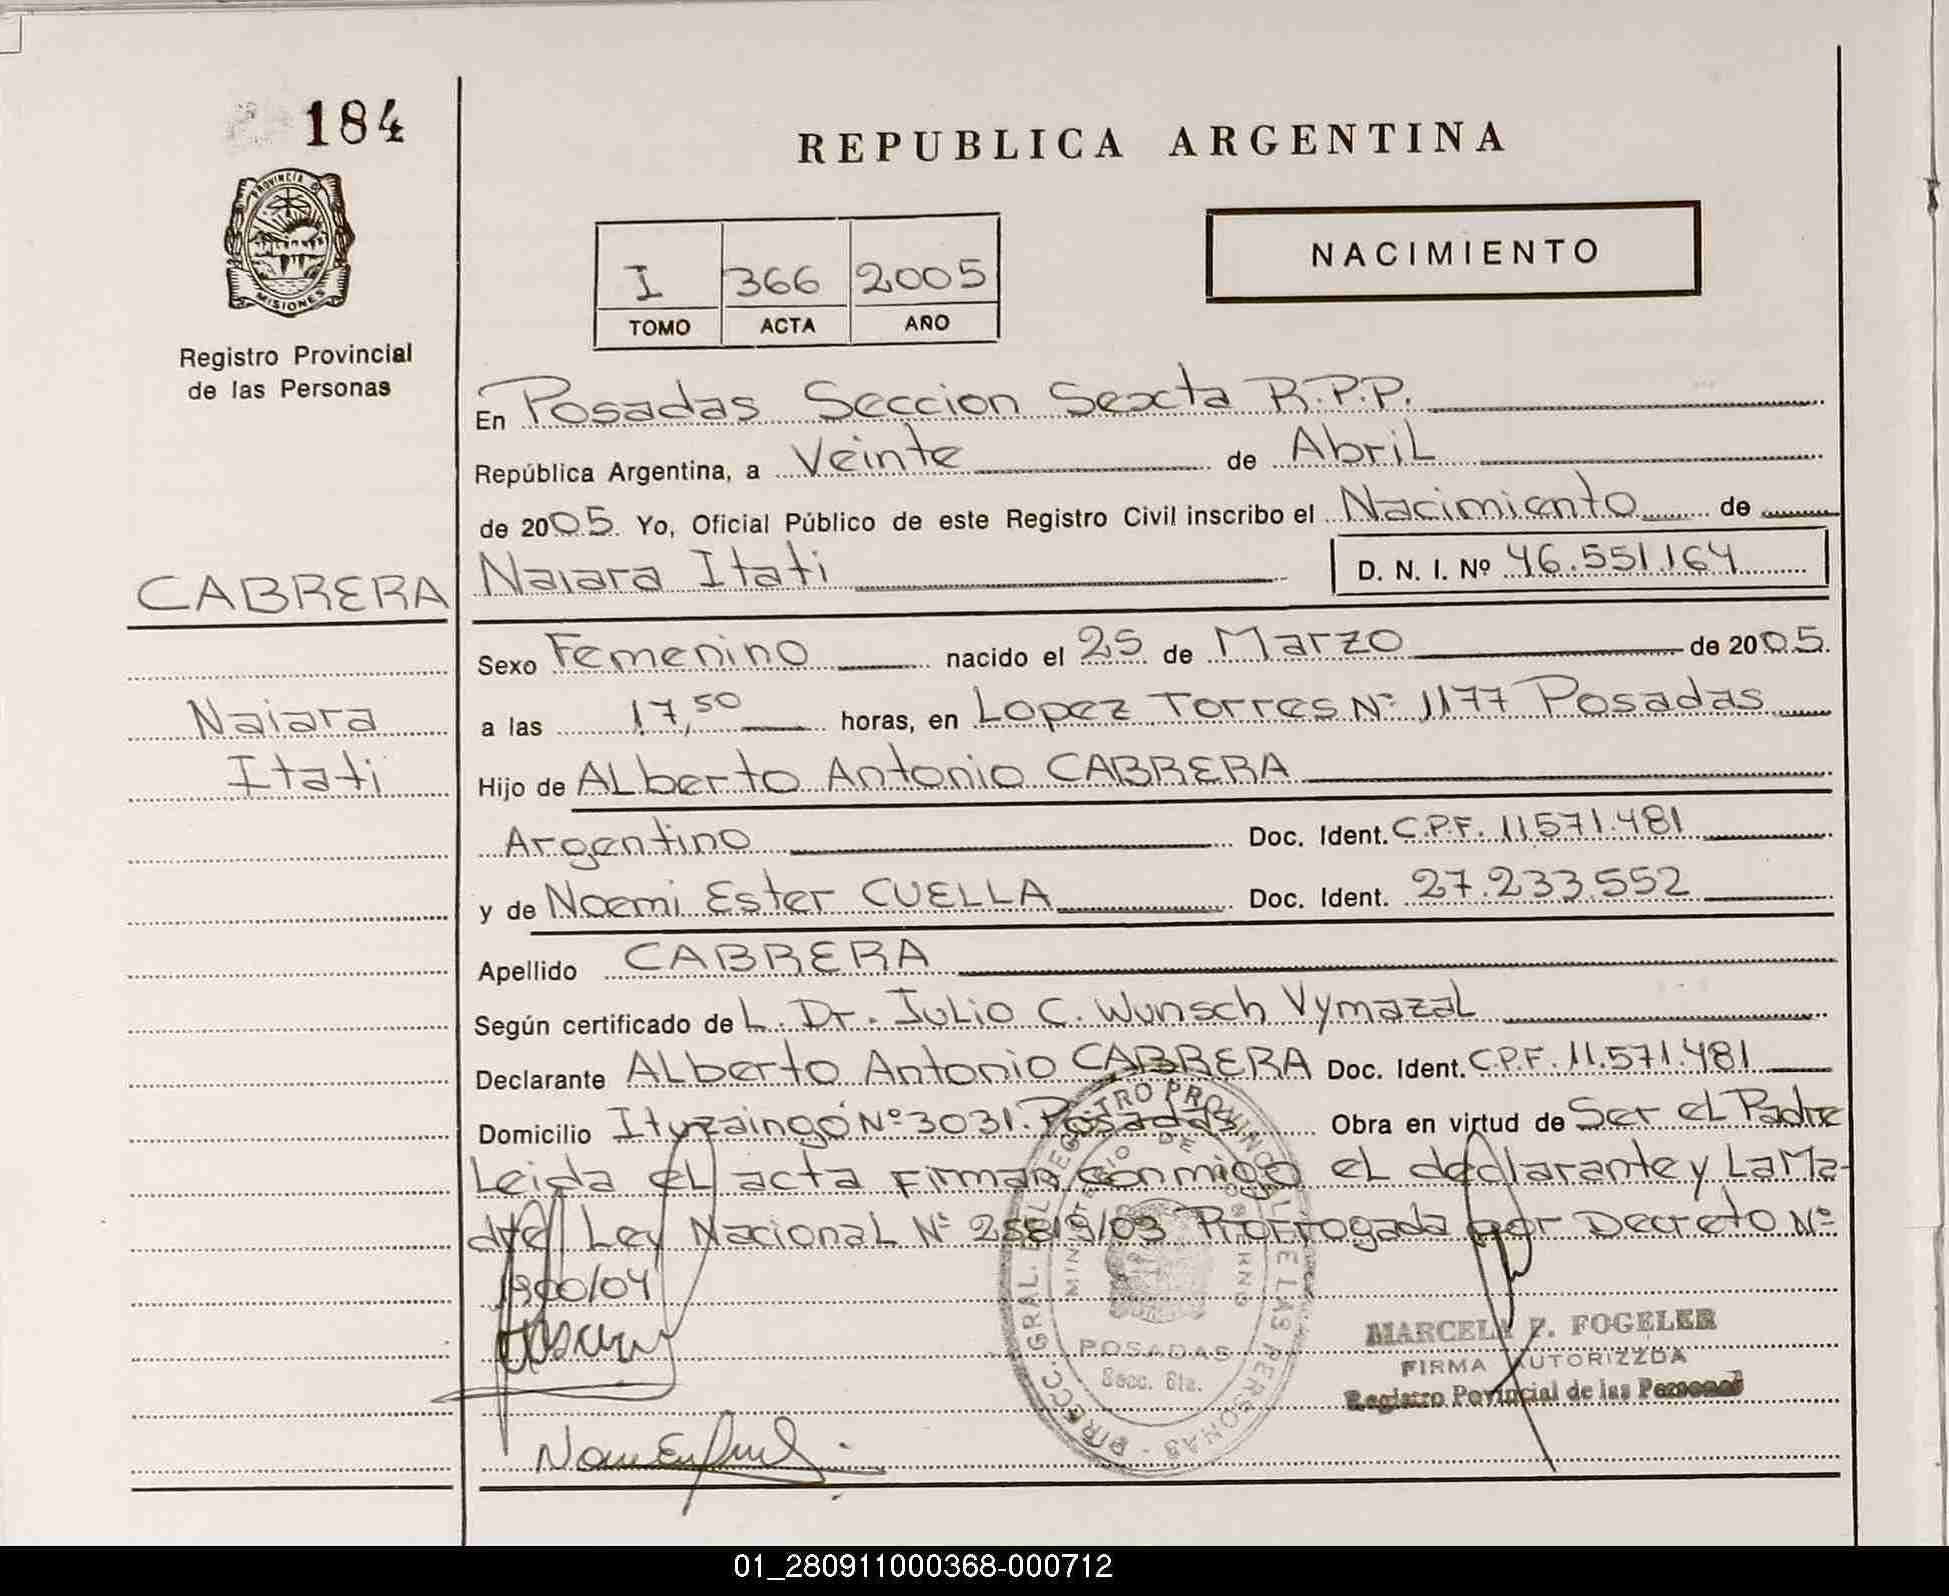 184
REPUBLICA ARGENTINA
PROVINCIA D
MISIONES
Registro Provincial
de las Personas
NACIMIENTO
I 366 2005
TOMO ACTA AÑO
En Posadas Seccion Sexta R.P.P.
República Argentina, a Veinte de Abril
de 2005. Yo, Oficial Público de este Registro Civil inscribo el Nacimiento de
CABRERA
Naiara Itati
D. N. I. Nº 46.551.164
Sexo Femenino nacido el 25 de Marzo de 2005.
Naiara
Itati
a las 17,50 horas, en Lopez Torres Nº 1177 Posadas
Hijo de Alberto Antonio CABRERA
Argentino Doc. Ident. C.P.F. 11.571.481
y de Noemi Ester CUELLA Doc. Ident. 27.233.552
Apellido CABRERA
Según certificado de L. Dr. Julio C. Wunsch Vymazal
Declarante Alberto Antonio CABRERA Doc. Ident. C.P.F. 11.571.481
Domicilio Ituzaingó Nº 3031. Posadas Obra en virtud de Ser el Padre
Leida el acta Firman conmigo el declarante y La Ma-
dre Ley Nacional Nº 25819/03 Prorrogada por Decreto Nº
1900/04
DIRECC. GRAL. DEL REGISTRO PROVINCIAL DE LAS PERSONAS
MINISTERIO DE GOBIERNO
POSADAS
Secc. 6ta.
MARCELA F. FOGELER
FIRMA AUTORIZZDA
Registro Povincial de las Personas
01_280911000368-000712